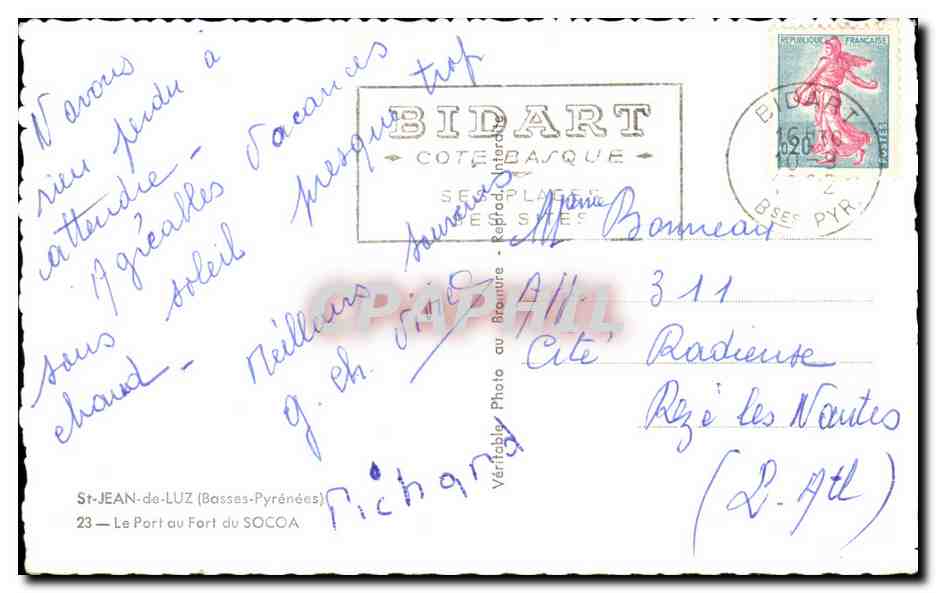 N'avons
rien perdu à
attendre -
Agréables vacances
sous soleil presque trop
chaud - Meilleurs souvenirs
g. ch.
Richard
BIDART
COTE BASQUE
SES PLAGES
SES SITES
REPUBLIQUE FRANÇAISE
POSTES
0,20
BIDART
16H
10 - 9
Bses PYR.
Mme Bonneau
App. 311
Cité Radieuse
Rezé les Nantes
(L. Atl)
CPAPHIL
Véritable Photo au Bromure - Reprod. Interdite
St-JEAN-de-LUZ (Basses-Pyrénées)
23 — Le Port au Fort du SOCOA